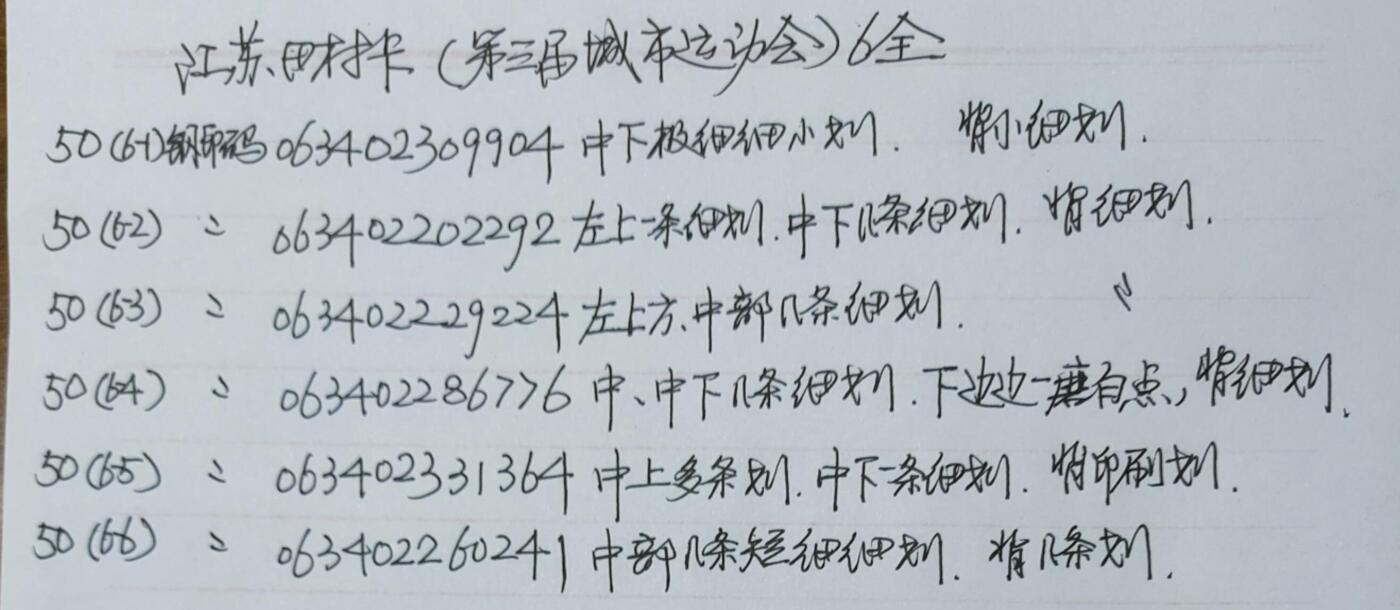 江苏田村卡(第三届城市运动会)6全
50(6-1)钢印码063402309904中下极细细小划. 背小细划.
50(6-2) 〃 063402202292左上一条细划.中下几条细划. 背细划.
50(6-3) 〃 063402229224左上方、中部几条细划.
50(6-4) 〃 063402286776中、中下几条细划.下边边一磨白点,背细划.
50(6-5) 〃 063402331364中上多条划.中下一条细划. 背印刷划.
50(6-6) 〃 063402260241中部几条短细细划. 背几条划.